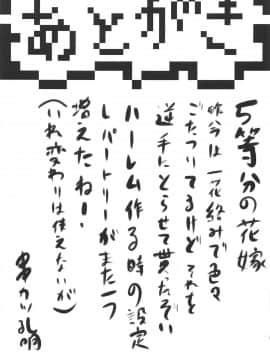 あとがき
5等分の花嫁
昨今は一花絡みで色々
ごたついてるけどそれを
逆手にとらせて貰ったぞい
ハーレム作る時の設定
レパートリーがまた一つ
増えたねー!
(いれ変わりは使えないが)
男カツ孔明